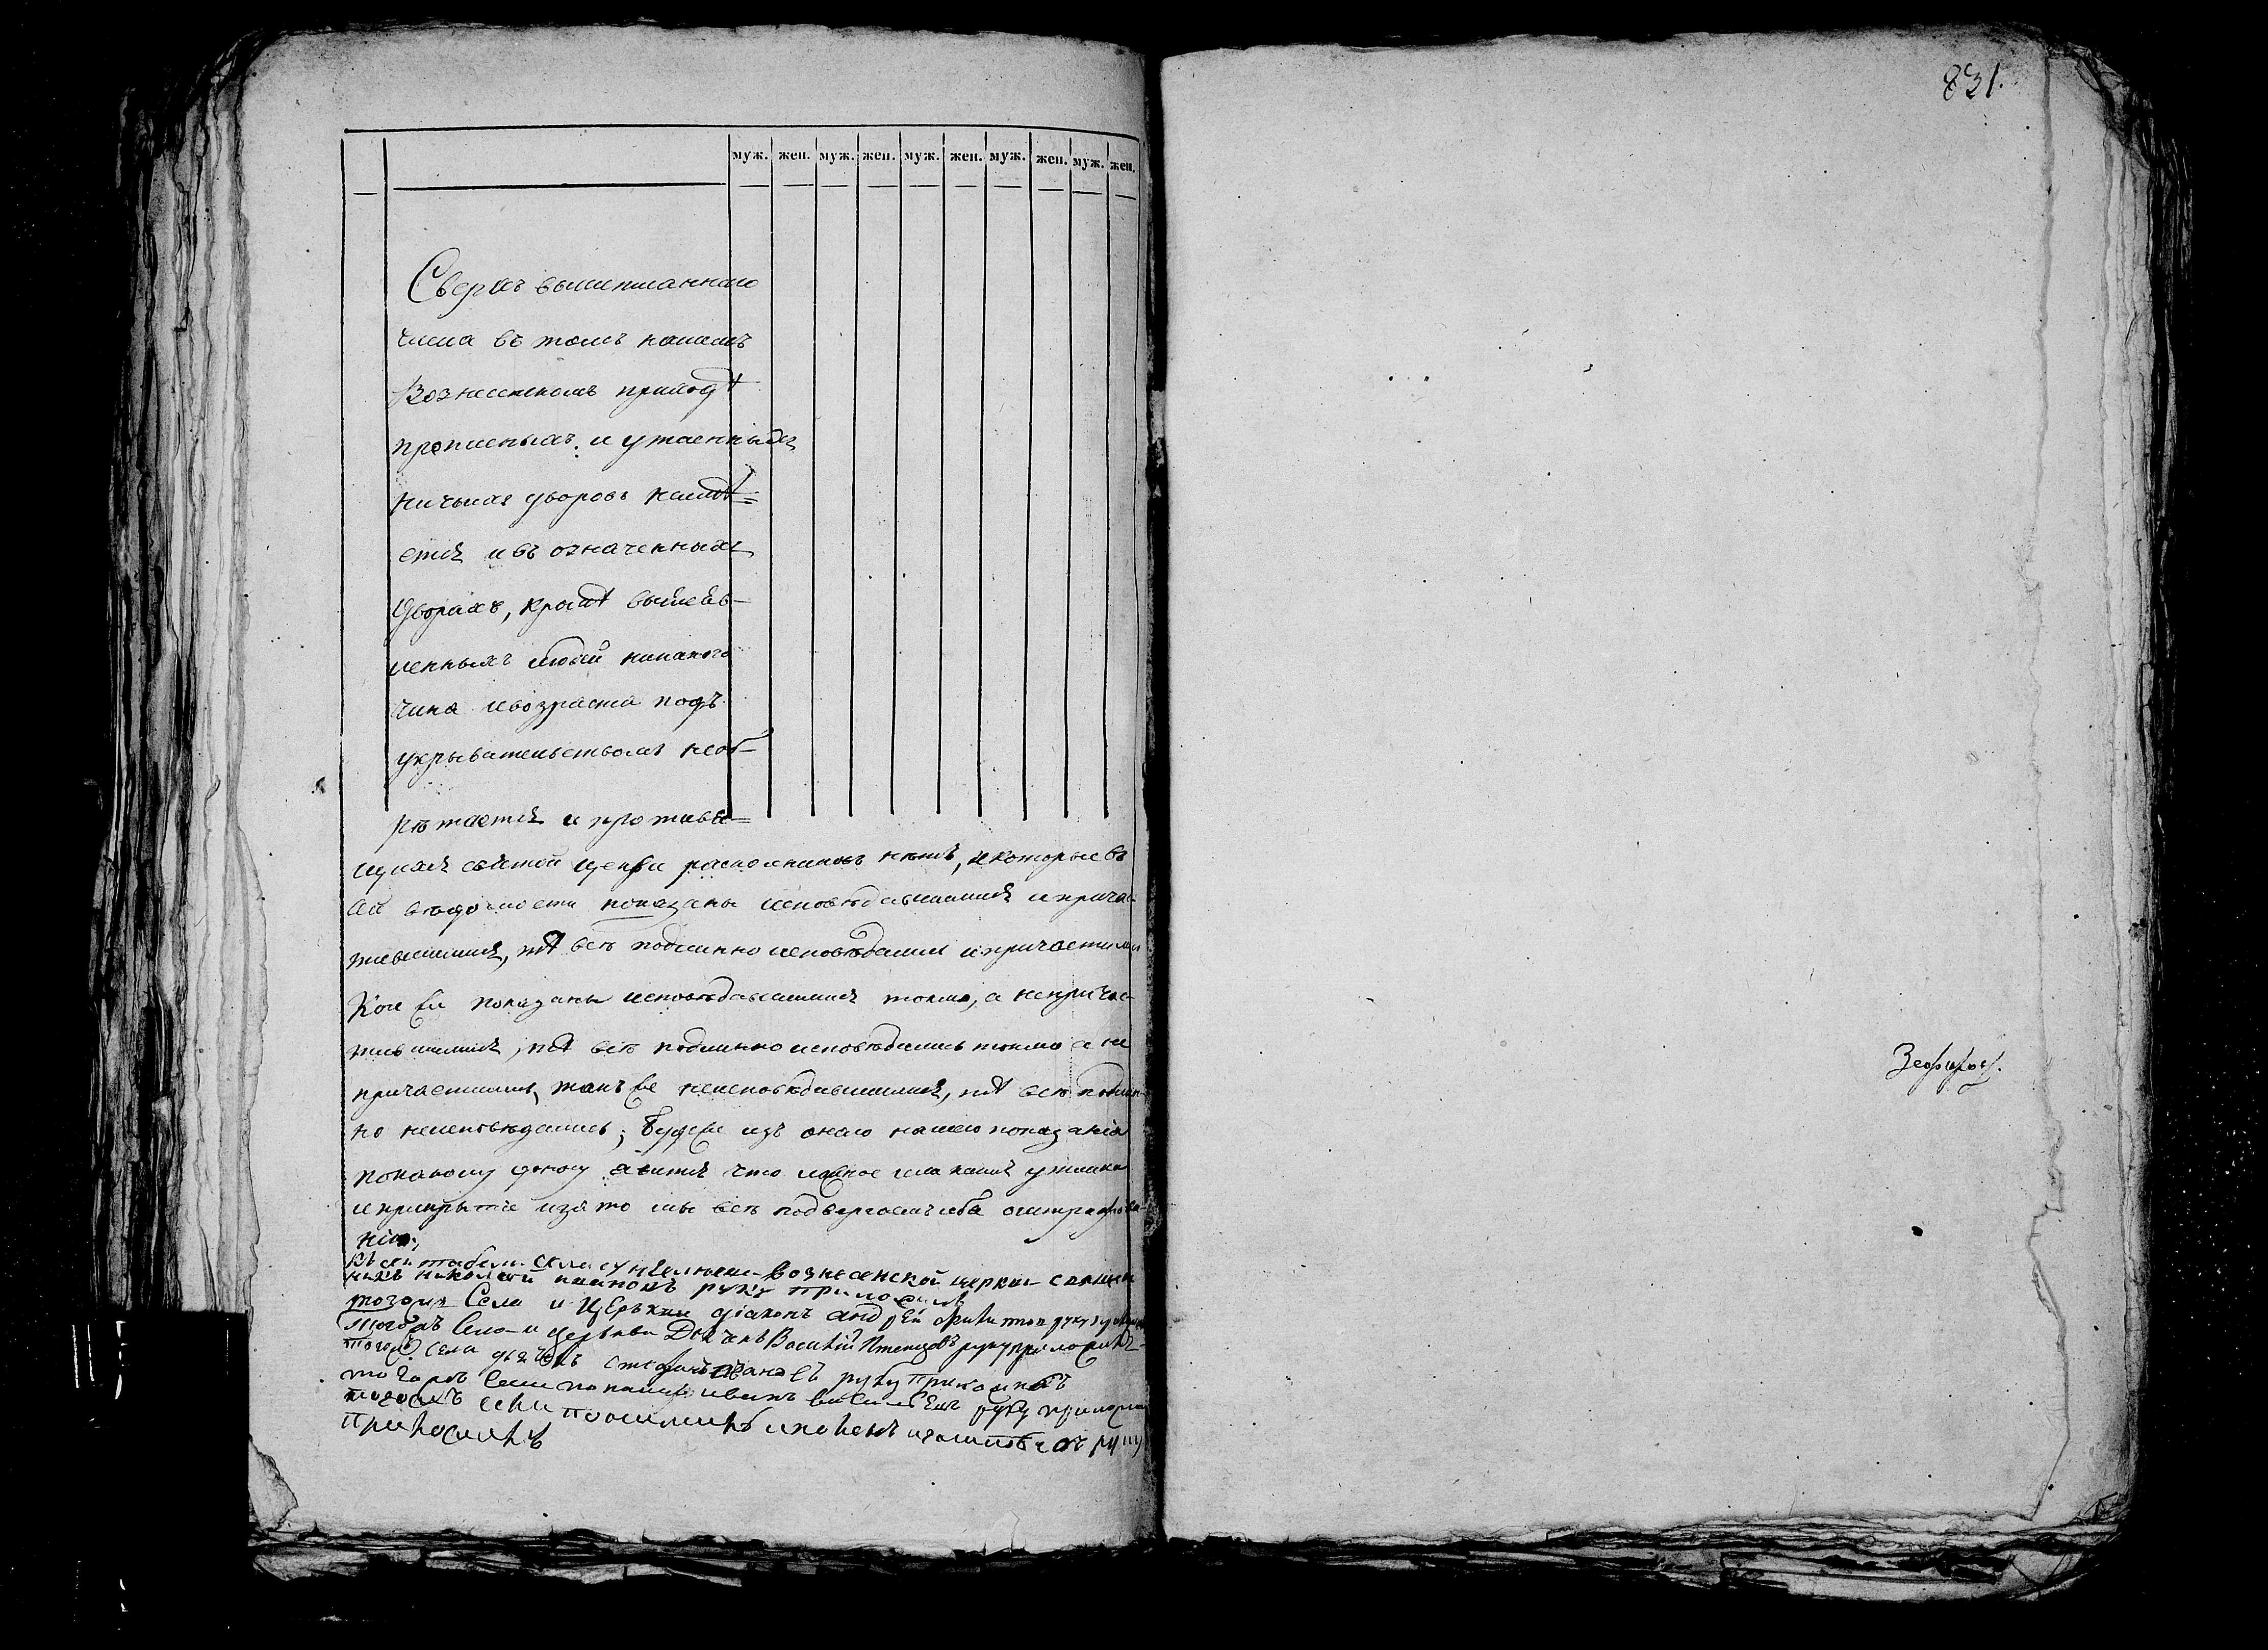 831.
муж. жен. муж. жен. муж. жен. муж. жен. муж. жен.
Сверхъ вышеписаннаго
числа въ томъ нашемъ
Вознесенскомъ приходѣ
прописныхъ и утаенныхъ
ничьихъ дворовъ неимѣ=
ется ивъ означенныхъ
дворахъ, кромѣ вышеяв-
ленныхъ людей никакого
чина ивозраста подъ
укрывательствомъ необ-
рѣтается и противя=
щихся святой церкви раскольниковъ нѣтъ, икоторые въ
сей вѣдомости показаны исповѣдавшимися ипричас-
тившимися, тѣ всѣ подлинно исповѣдались ипричастились
Кои же показаны исповѣдавшимися токмо, а неприча-
тившимися, тѣ всѣ подлинно исповѣдались токмо а не
причастились, такъ же неисповѣдавшимися, тѣ всѣ подлин-
но неисповѣдались; Буде же изъ онаго нашего показанія
покакому доносу явится что ложное или какая утайка
иприкрытіе изато мы всѣ подвергаемъ себя оштрафова-
нію,
Къ сей села Вознесенской церкви священ
никъ николай руку приложилъ
тогожъ Села и Церькви діаконъ андрей руку
Тогожъ Села и церькви Дьячекъ Василій Птенцовъ руку приложилъ
тогожъ села дьячекъ стефанъ руку приложилъ
тогожъ Села пономарь иванъ васильевъ руку приложилъ
тогожъ села пономарь руку
приложилъ
Зефиров.